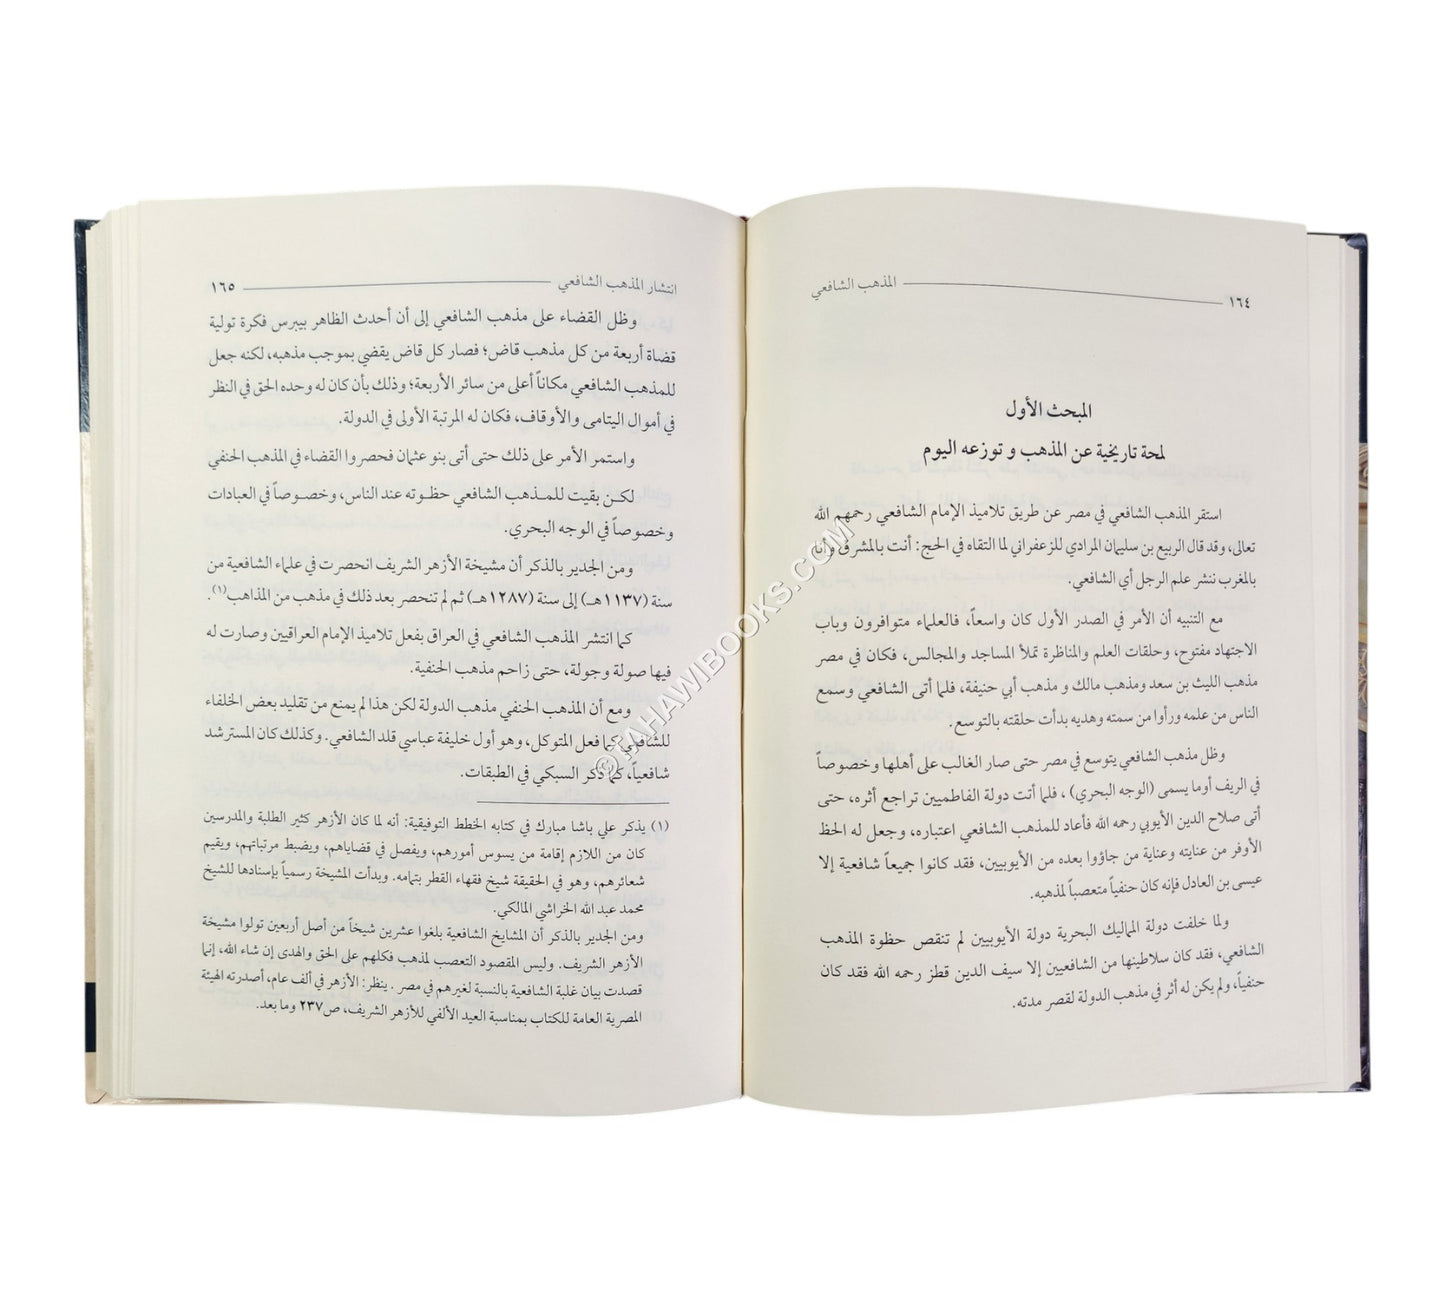 ١٦٤ المذهب الشافعي
المبحث الأول
لمحة تاريخية عن المذهب و توزعه اليوم
استقر المذهب الشافعي في مصر عن طريق تلاميذ الإمام الشافعي رحمهم الله
تعالى، وقد قال الربيع بن سليمان المرادي للزعفراني لما التقاه في الحج: أنت بالمشرق وأنا
بالمغرب ننشر علم الرجل أي الشافعي.
مع التنبيه أن الأمر في الصدر الأول كان واسعاً، فالعلماء متوافرون وباب
الاجتهاد مفتوح، وحلقات العلم والمناظرة تملأ المساجد والمجالس، فكان في مصر
مذهب الليث بن سعد ومذهب مالك و مذهب أبي حنيفة، فلما أتى الشافعي وسمع
الناس من علمه ورأوا من سمته وهديه بدأت حلقته بالتوسع.
وظل مذهب الشافعي يتوسع في مصر حتى صار الغالب على أهلها وخصوصاً
في الريف أوما يسمى (الوجه البحري) ، فلما أتت دولة الفاطميين تراجع أثره، حتى
أتى صلاح الدين الأيوبي رحمه الله فأعاد للمذهب الشافعي اعتباره، وجعل له الحظ
الأوفر من عنايته وعناية من جاؤوا بعده من الأيوبيين، فقد كانوا جميعاً شافعية إلا
عيسى بن العادل فإنه كان حنفياً متعصباً لمذهبه.
ولما خلفت دولة المماليك البحرية دولة الأيوبيين لم تنقص حظوة المذهب
الشافعي، فقد كان سلاطينها من الشافعيين إلا سيف الدين قطز رحمه الله فقد كان
حنفياً، ولم يكن له أثر في مذهب الدولة لقصر مدته.
انتشار المذهب الشافعي ١٦٥
وظل القضاء على مذهب الشافعي إلى أن أحدث الظاهر بيبرس فكرة تولية
قضاة أربعة من كل مذهب قاض؛ فصار كل قاض يقضي بموجب مذهبه، لكنه جعل
للمذهب الشافعي مكاناً أعلى من سائر الأربعة؛ وذلك بأن كان له وحده الحق في النظر
في أموال اليتامى والأوقاف، فكان له المرتبة الأولى في الدولة.
واستمر الأمر على ذلك حتى أتى بنو عثمان فحصروا القضاء في المذهب الحنفي
لكن بقيت للمذهب الشافعي حظوته عند الناس، وخصوصاً في العبادات
وخصوصاً في الوجه البحري.
ومن الجدير بالذكر أن مشيخة الأزهر الشريف انحصرت في علماء الشافعية من
سنة (١١٣٧هـ) إلى سنة (١٢٨٧هـ) ثم لم تنحصر بعد ذلك في مذهب من المذاهب(١).
كما انتشر المذهب الشافعي في العراق بفعل تلاميذ الإمام العراقيين وصارت له
فيها صولة وجولة، حتى زاحم مذهب الحنفية.
ومع أن المذهب الحنفي مذهب الدولة لكن هذا لم يمنع من تقليد بعض الخلفاء
للشافعي كما فعل المتوكل، وهو أول خليفة عباسي قلد الشافعي. وكذلك كان المسترشد
شافعياً، كما ذكر السبكي في الطبقات.
(١) يذكر علي باشا مبارك في كتابه الخطط التوفيقية: أنه لما كان الأزهر كثير الطلبة والمدرسين
كان من اللازم إقامة من يسوس أمورهم، ويفصل في قضاياهم، ويضبط مرتباتهم، ويقيم
شعائرهم، وهو في الحقيقة شيخ فقهاء القطر بتمامه. وبدأت المشيخة رسمياً بإسنادها للشيخ
محمد عبد الله الخراشي المالكي.
ومن الجدير بالذكر أن المشايخ الشافعية بلغوا عشرين شيخاً من أصل أربعين تولوا مشيخة
الأزهر الشريف. وليس المقصود التعصب لمذهب فكلهم على الحق والهدى إن شاء الله، إنما
قصدت بيان غلبة الشافعية بالنسبة لغيرهم في مصر . ينظر: الأزهر في ألف عام، أصدرته الهيئة
المصرية العامة للكتاب بمناسبة العيد الألفي للأزهر الشريف، ص٢٣٧ وما بعد.
©TAHAWIBOOKS.COM